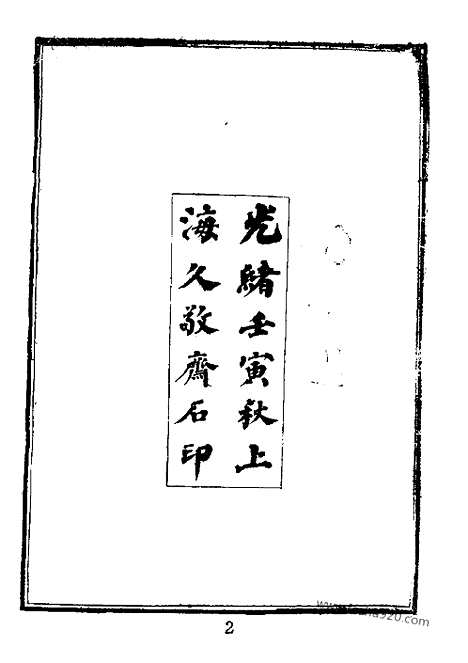 光緒壬寅秋上
海久敬齋石印
2